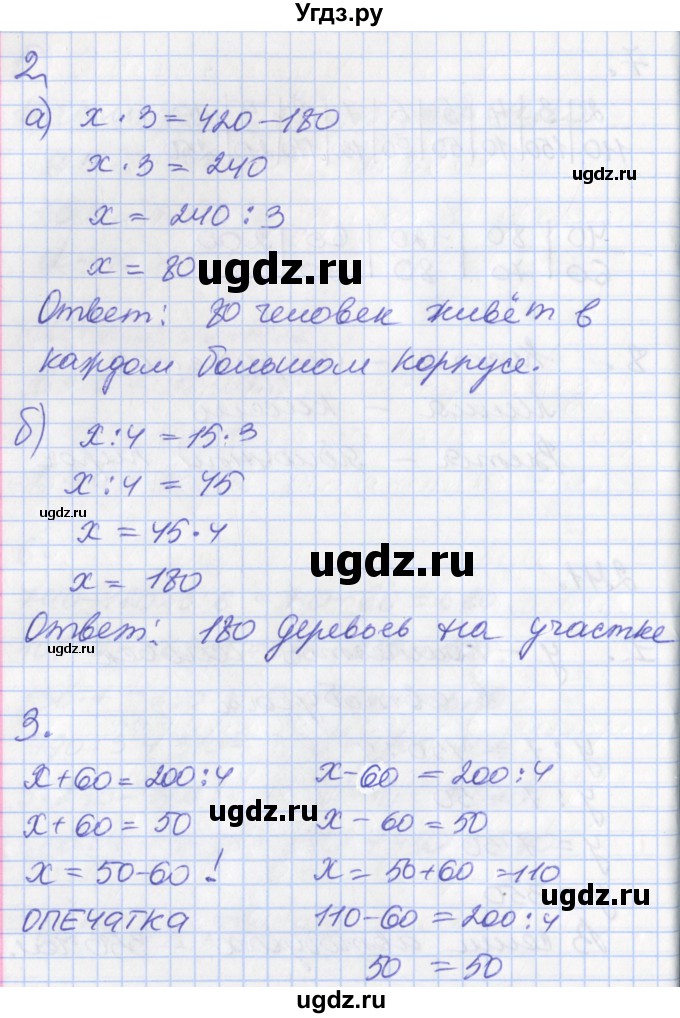 Угдз.ру
2
а) x · 3 = 420 - 180
x · 3 = 240
ugdz.ru
x = 240 : 3
x = 80
ugdz.ru
Ответ: 80 человек живёт в
каждом большом корпусе.
б) x : 4 = 15 · 3
x : 4 = 45
ugdz.ru
x = 45 · 4
ugdz.ru
x = 180
Ответ: 180 деревьев на участке
ugdz.ru
3.
x + 60 = 200 : 4
x + 60 = 50
x = 50 - 60 !
ОПЕЧАТКА
x - 60 = 200 : 4
ugdz.ru
x - 60 = 50
x = 50 + 60 = 110
ugdz.ru
110 - 60 = 200 : 4
50 = 50
ugdz.ru